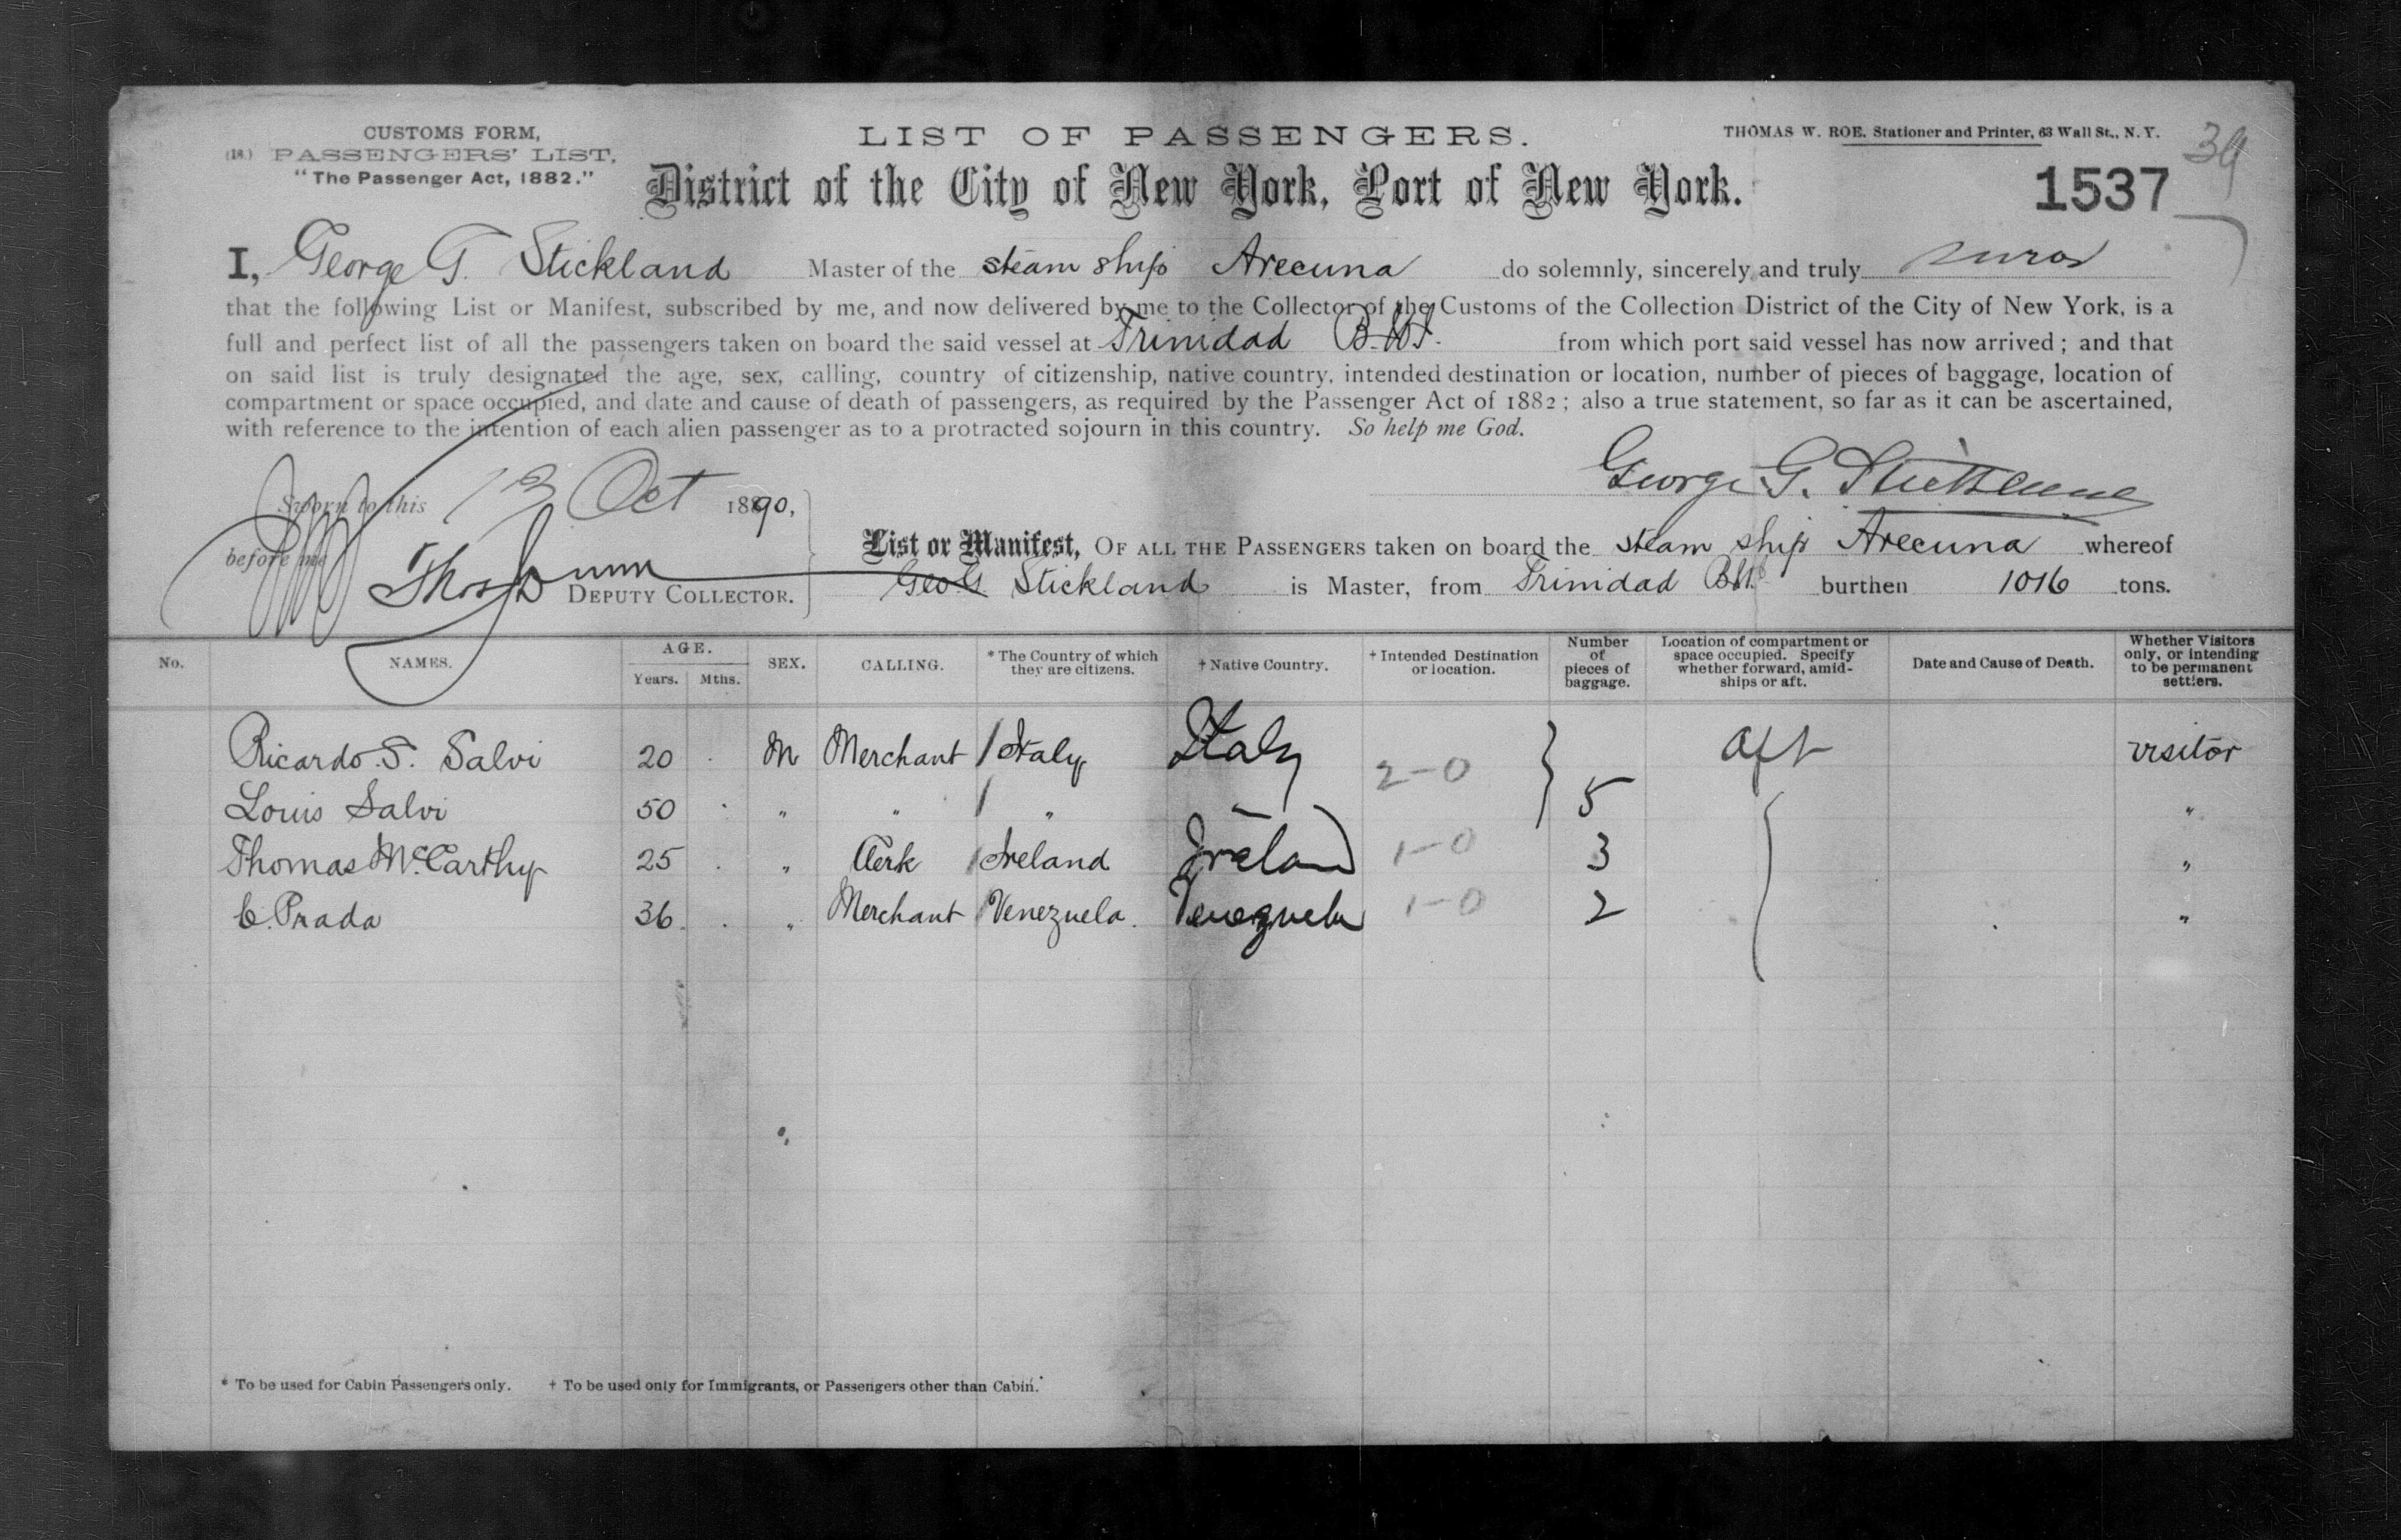 CUSTOMS FORM,
(18.) PASSENGERS' LIST,
"The Passenger Act, 1882."
LIST OF PASSENGERS.
THOMAS W. ROE. Stationer and Printer, 63 Wall St., N. Y.
39
District of the City of New York, Port of New York.
1537
I, George G. Stickland Master of the steam ship Arecuna do solemnly, sincerely and truly
that the following List or Manifest, subscribed by me, and now delivered by me to the Collector of the Customs of the Collection District of the City of New York, is a
full and perfect list of all the passengers taken on board the said vessel at Trinidad B.W.I. from which port said vessel has now arrived; and that
on said list is truly designated the age, sex, calling, country of citizenship, native country, intended destination or location, number of pieces of baggage, location of
compartment or space occupied, and date and cause of death of passengers, as required by the Passenger Act of 1882; also a true statement, so far as it can be ascertained,
with reference to the intention of each alien passenger as to a protracted sojourn in this country. So help me God.
George G. Stickland
Sworn to this 13 Oct 1890,
before me
Thos Dunn DEPUTY COLLECTOR.
List or Manifest, OF ALL THE PASSENGERS taken on board the steam ship Arecuna whereof
Geo G. Stickland is Master, from Trinidad BWI burthen 1016 tons.
No. NAMES. AGE. Years. Mths. SEX. CALLING. * The Country of which they are citizens. † Native Country. † Intended Destination or location. Number of pieces of baggage. Location of compartment or space occupied. Specify whether forward, amid-ships or aft. Date and Cause of Death. Whether Visitors only, or intending to be permanent settlers.
Ricardo S. Salvi 20 M Merchant / Italy Italy 2-0 Aft visitor
Louis Salvi 50 " " / " " 5 "
Thomas McCarthy 25 " Clerk / Ireland Ireland 1-0 3 "
C. Prada 36 " Merchant / Venezuela Venezuela 1-0 2 "
* To be used for Cabin Passengers only. † To be used only for Immigrants, or Passengers other than Cabin.